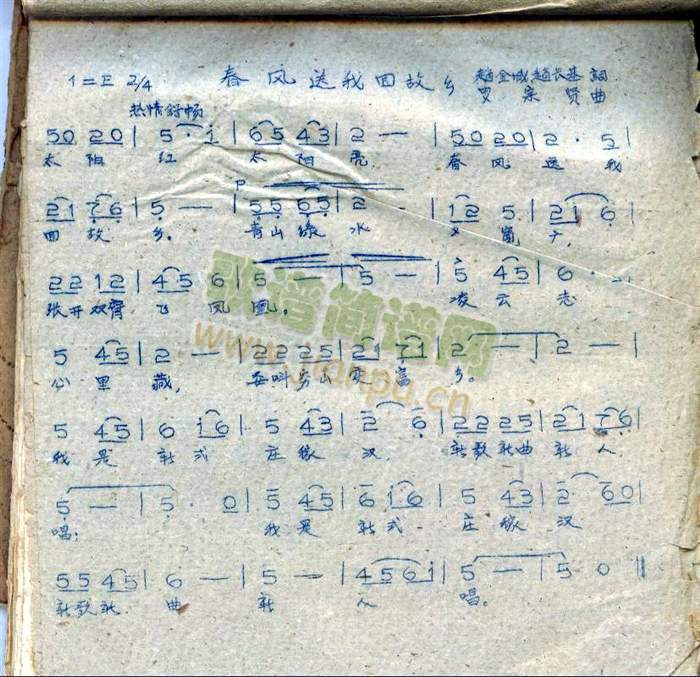 1=E 2/4 春风送我回故乡 赵金城 赵长基 詞
罗宗贤 曲
热情舒畅
50 20 | 5 · i | 65 43 | 2 — | 50 20 | 2 · 5 |
太阳 红 太阳 亮, 春风 送 我
21 76 | 5 · — | 55 65 | 2 — | 12 5 | 21 6 |
回故 乡。 青山绿 水
22 12 | 45 6 | 5 — | 5 — | 5 45 | 6 · — |
张开双臂 飞凤凰。 凌云志
5 45 | 2 — | 22 25 | 21 71 | 2 — | 2 — |
心里藏, 要叫穷山变富乡。
5 45 | 6 i6 | 5 43 | 2 6 | 22 25 | 21 76 |
我是 新式 庄稼 汉, 新歌新曲 新人
5 — | 5 · 0 | 5 45 | 6 i6 | 5 43 | 2 · 60 |
唱; 我是 新式 庄稼 汉
55 45 | 6 — | 5 — | 456i | 5 — | 5 0 ‖
新歌新 曲 新 人 唱。
歌谱简谱网
www.jianpu.cn